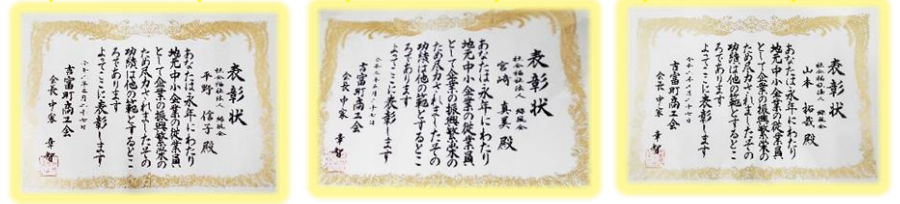 表彰状
社会福祉法人
平野 信子 殿
あなたは永年にわたり
地元中小企業の従業員
として企業の振興繁栄の
ため尽力されましたその
功績は他の範とするとこ
ろであります
よってここに表彰します
吉富町商工会
会長 中家 章智
表彰状
社会福祉法人
宮崎 真美 殿
あなたは永年にわたり
地元中小企業の従業員
として企業の振興繁栄の
ため尽力されましたその
功績は他の範とするとこ
ろであります
よってここに表彰します
吉富町商工会
会長 中家 章智
表彰状
社会福祉法人
山本 拓哉 殿
あなたは永年にわたり
地元中小企業の従業員
として企業の振興繁栄の
ため尽力されましたその
功績は他の範とするとこ
ろであります
よってここに表彰します
吉富町商工会
会長 中家 章智